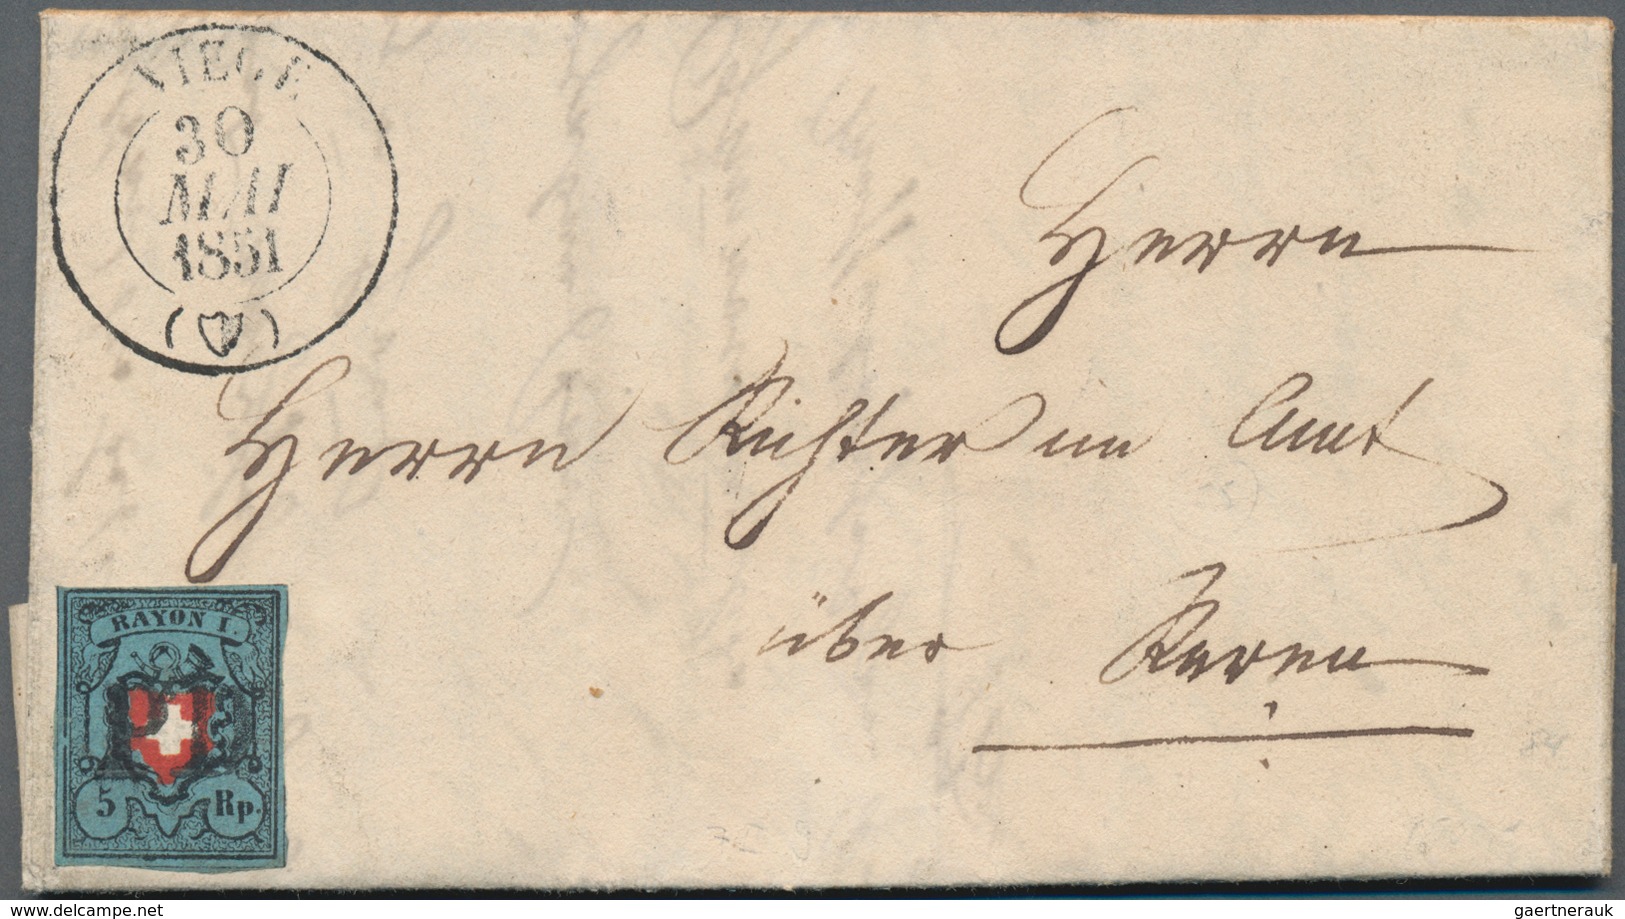 VIEGE
30
MAI
1851
Herrn
Herrn Richter im Amt
über Raren
RAYON I.
PD
5 Rp.
delcampe.net
gaertnerauk